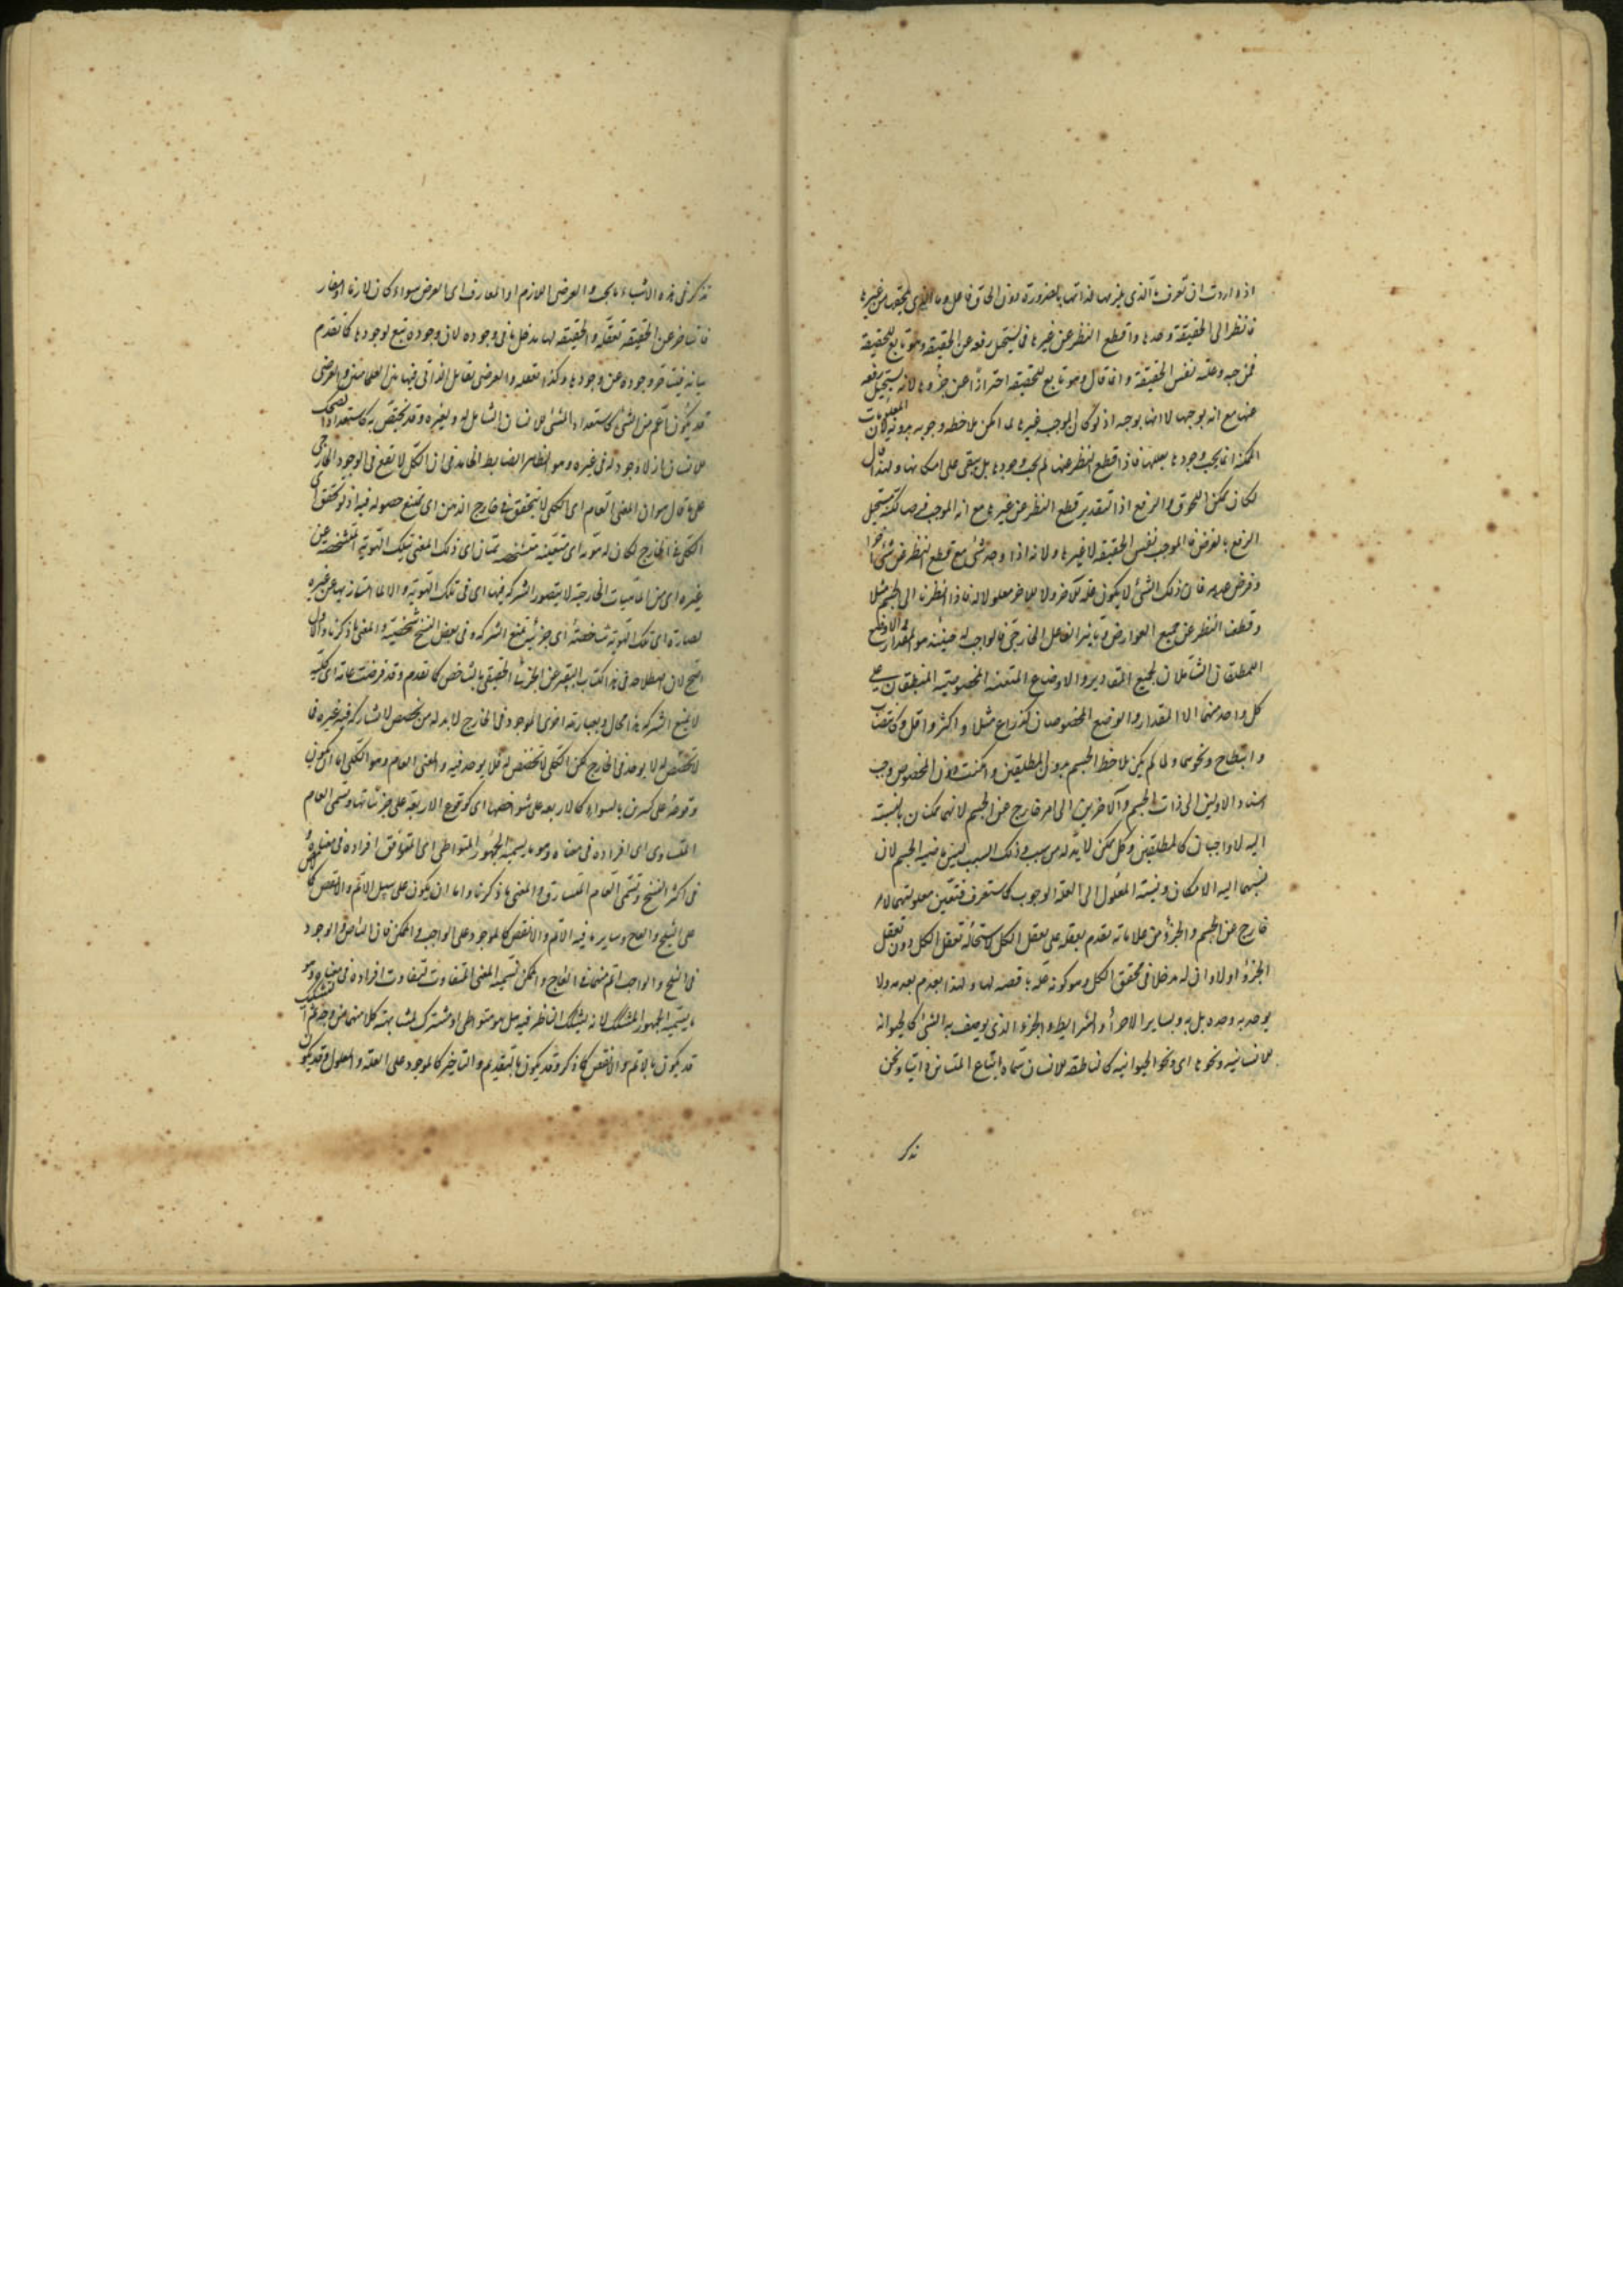 اذا اردت ان تعرف ما الذى يلزمها لذاتها بالضرورة دون الحاق فاعل وما الذى يلحقها من غيرها
فانظر الى الحقيقة وحدها واقطع النظر عن غيرها فما يستحيل رفعه عن الحقيقة وهو تابع للحقيقة
فموجبه وعلته نفس الحقيقة وانما قال وهو تابع للحقيقة احترازا عن جزؤها لانه يستحيل رفعه
عنها مع انه يوجبها لا انها يوجبه اذ لو كان الموجب غيرها لما امكن ملاحظه وجوبه بدونه كان المعلولات
الممكنة انما يجب وجودها بعللها فاذا قطع النظر عنها لم يجب وجودها بل يبقى على امكانها ولهذا قال
لكان ممكن اللحوق والرفع اذ التقدير قطع النظر عن غيرها مع انه الموجب فرضا لكنه مستحيل
الرفع بالفرض فالموجب نفس الحقيقة لا غيرها ولانه اذا وجد شئ مع قطع النظر عن شئ آخر
وفرض عدمه فان ذلك الشئ لا يكون علة للآخر ولا للآخر معلولا له فاذا نظرنا الى الجسم مثلا
وقطعنا النظر عن جميع العوارض وتاثير الفاعل الخارجى فالواجب له حينئذ هو المقدار والوضع
المطلقان الشاملان لجميع المقادير والاوضاع المتعينه المخصوصيه المنطبقان على
كل واحد منهما الا المقدار والوضع المخصوصان كذراع مثلا واكثر واقل وكانتصاب
وانبطاح ونحوهما ولما لم يمكن ملاحظ الجسم بدون المطلقين وامكنت دون المخصوص وجب
اسناد الاولين الى ذات الجسم والآخرين الى امر خارج عن الجسم لانهما ممكنان بالنسبة
اليه لا واجبان كالمطلقين وكل ممكن لا بد له من سبب وذلك السبب ليس ماهية الجسم لان
نسبتهما اليه الامكان ونسبة المعلول الى العلة الوجوب كما ستعرف فتعين معلوليتهما لامر
خارج عن الجسم والجزؤ من علاماته تقدم تعقله على تعقل الكل لاستحالة تعقل الكل دون تعقل
الجزؤ اولا وان له مدخلا فى تحقق الكل وهو كونه علة ناقصه لها ولهذا يعدم بعدمه ولا
يوجد به وحده بل به وبساير الاجزا والشرايط والجزؤ الذى يوصف به الشئ كالحيوانية
للانسانيه ونحوها اى ونحو الحيوانيه كالناطقه للانسان سماه اتباع المشائين ذاتيا ونحن
نذكر
نذكر فى هذه الاشياء ما يجب والعرضى اللازم او المفارق اى العرض سواء كان لازما او مفارقا
فانه يتاخر عن الحقيقة تعقله والحقيقه لها مدخل ما فى وجوده لان وجوده يتبع لوجودها كما تقدم
بيانه فيتاخر وجوده عن وجودها وكذا تعقله والعرضى يقابل الذاتى فيها بين العلامتين والعرضى
قد يكون اعم من الشئ كاستعداد المشى للانسان الشامل له ولغيره وقد يختص به كاستعداد الضحك
للانسان فانه لا وجود له فى غيره وهو الظاهر الضابط الخامس فى ان الكلى لا يقع فى الوجود الخارجى
على ما قال هو ان المعنى العام اى الكلى لا يتحقق فى خارج الذهن اى يمتنع حصوله فيه اذ لو تحقق اى
الكلى فى الخارج لكان له هوية اى متعينه متشخصه يمتاز اى ذلك المعنى بتلك الهوية المتشخصه عن
غيره اى من الماهيات الخارجيه لا يتصور الشركة فيها اى فى تلك الهوية والا لما امتاز بها عن غيره
فصارت اى تلك الهوية شاخصة اى جزئية تمنع الشركه وفى بعض النسخ شخصية والمعنى ما ذكرنا والاول
اصح لان اصطلاحه فى هذا الكتاب التعبير عن الجزئى الحقيقى بالشاخص كما تقدم وقد فرضت عامة اى كلية
لا تمنع الشركه هذا محال وبعبارة اخرى الموجود فى الخارج لا بد له من مخصص لا يشاركه فيه غيره فما
لا تخصص له لا يوجد فى الخارج لكن الكلى لا تخصص له فلا يوجد فيه والمعنى العام وهو الكلى اما ان يكون
وقوعه على كثيرين بالسواء كالاربعه على شواخصها اى كوقوع الاربعة على جزئياتها وتسمى العام
المتساوى اى افراده فى معناه وهو ما يسميه الجمهور المتواطى اى المتوافق افراده فى معناه
فى اكثر النسخ ويسمى العام المتساوق والمعنى ما ذكرنا واما ان يكون على سبيل الاتم والانقص كالابيض
على الثلج والعاج وساير ما فيه الاتم والانقص كالموجود على الواجب والممكن فان البياض والوجود
فى الثلج والواجب اتم منهما فى العاج والممكن تسميه المعنى المتفاوت لتفاوت افراده فى معناه وهو
ما يسميه الجمهور المشكك لانه يشكك الناظر فيه هل هو متواطى او مشترك لمشابهته كلا منهما من وجه ثم التشكيك
قد يكون بالاتم والانقص كما ذكر وقد يكون بالتقديم والتاخير كالموجود على العلة والمعلول وقد يكون